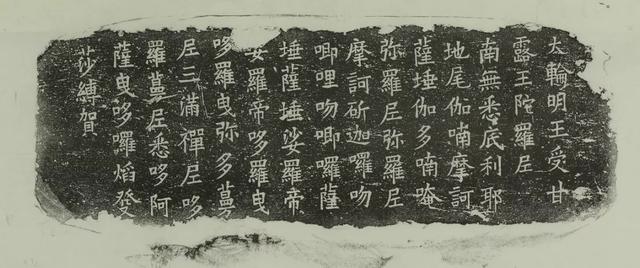 太輪明王受甘
露王陀羅尼
南無悉底利耶
地尾伽喃摩訶
薩埵伽多喃唵
弥羅尼弥羅尼
摩訶斫迦囉吻
唧哩吻唧囉薩
埵薩埵娑羅帝
羅帝哆羅曳
哆羅曳弥多
尼三滿禪尼哆
羅尼悉哆阿
薩曳哆囉焰癹
莎縛賀